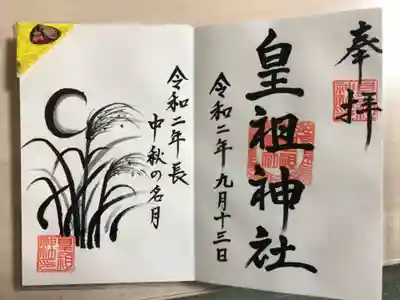 奉拝
皇祖神社
令和二年九月十三日
令和二年長
中秋の名月